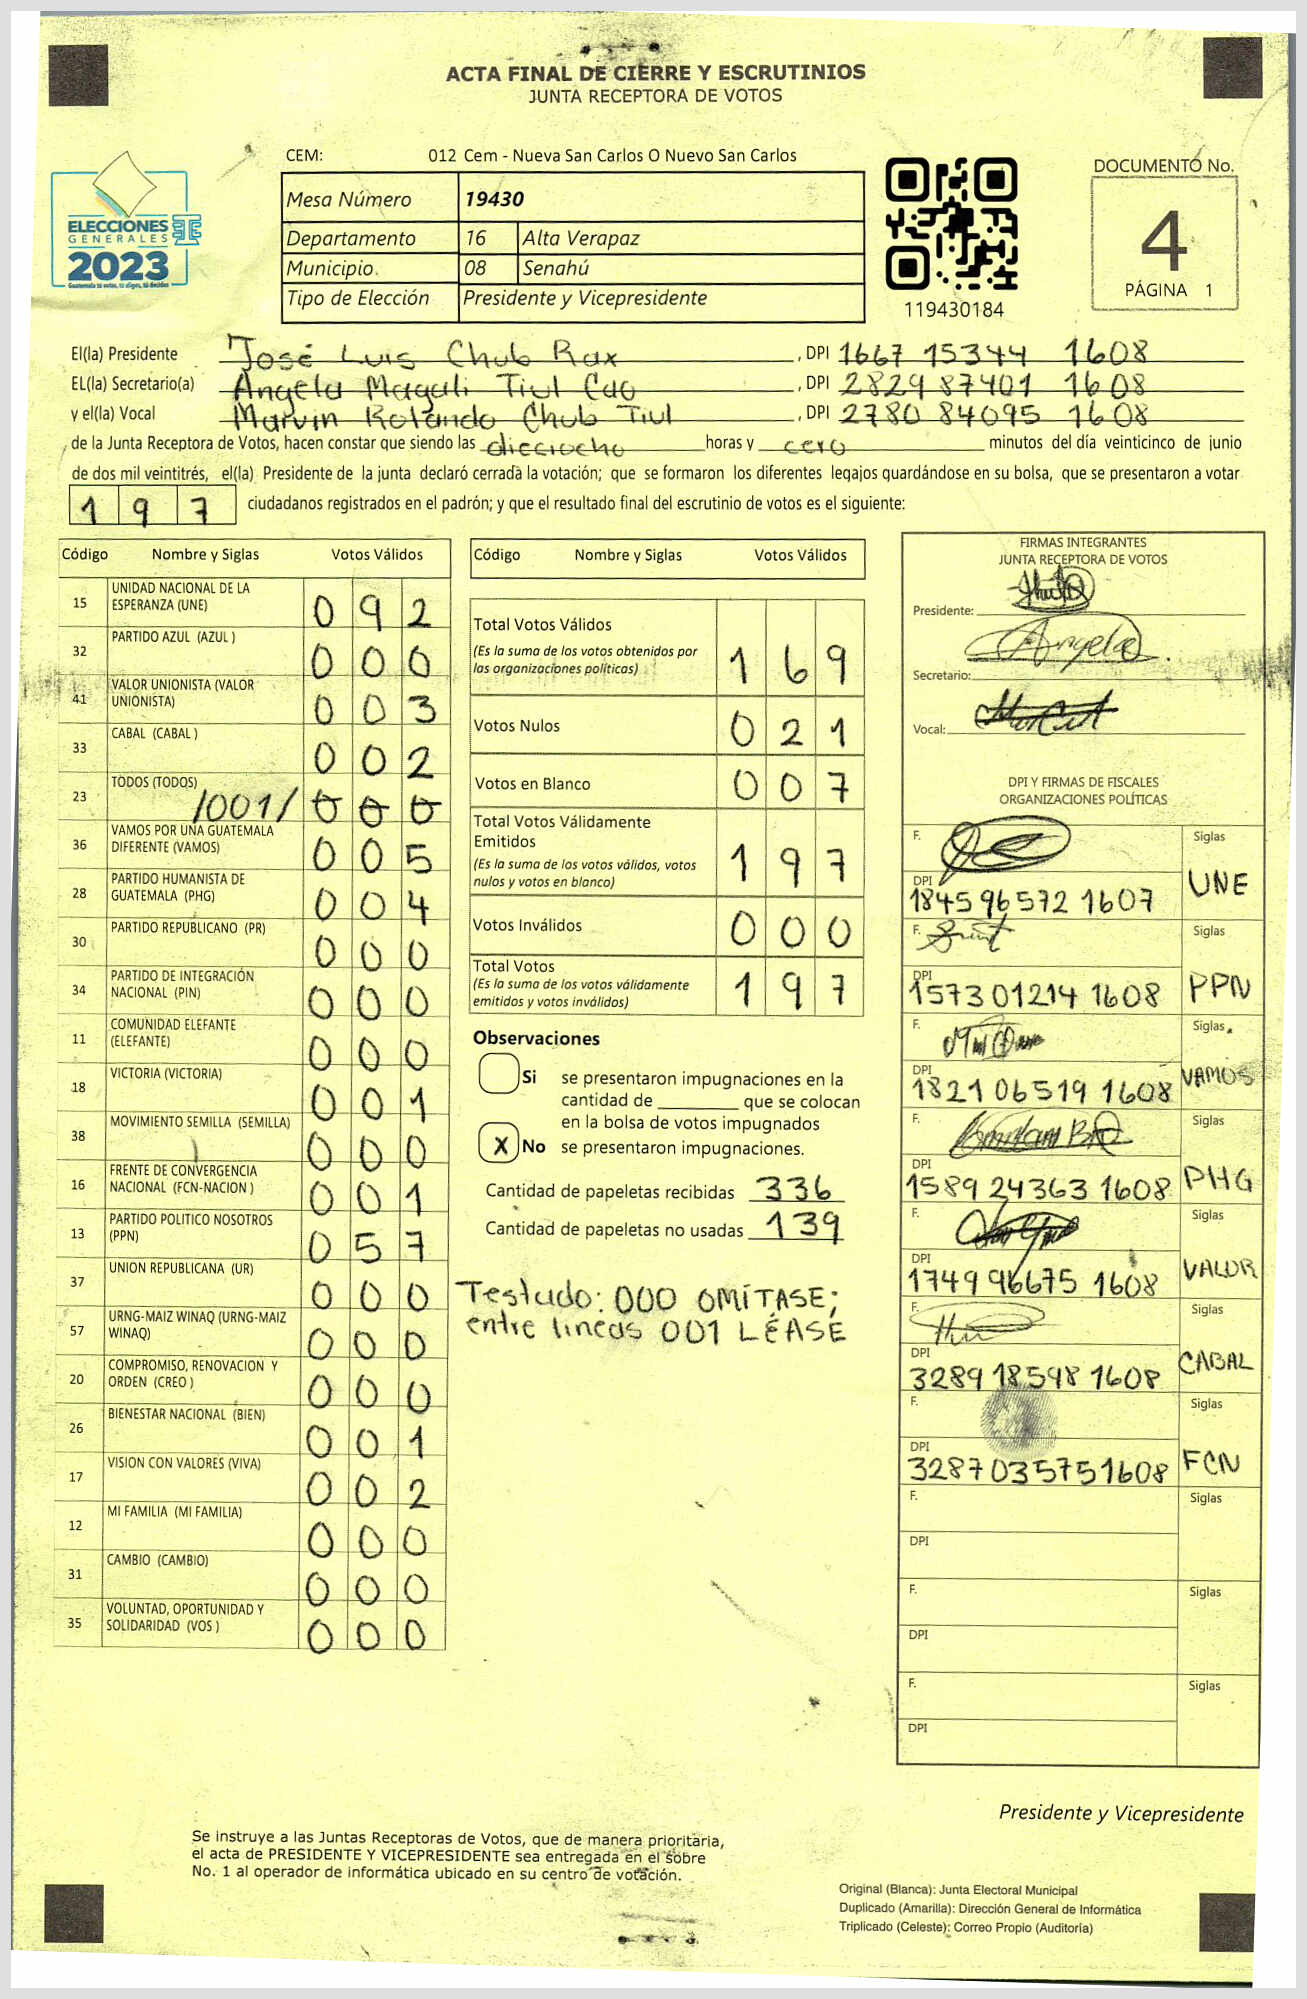 ACTA FINAL DE CIERRE Y ESCRUTINIOS
JUNTA RECEPTORA DE VOTOS
CEM: 012 Cem - Nueva San Carlos O Nuevo San Carlos
ELECCIONES
GENERALES
2023
Guatemala tu votas, tú eliges, tú decides
Mesa Número 19430
Departamento 16 Alta Verapaz
Municipio 08 Senahú
Tipo de Elección Presidente y Vicepresidente
119430184
DOCUMENTO No.
4
PÁGINA 1
El(la) Presidente José Luis Chub Rax , DPI 1667 15344 1608
EL(la) Secretario(a) Angela Magali Tiul Cao , DPI 2829 87401 1608
y el(la) Vocal Marvin Rolando Chub Tiul , DPI 2780 84095 1608
de la Junta Receptora de Votos, hacen constar que siendo las dieciocho horas y cero minutos del día veinticinco de junio
de dos mil veintitrés, el(la) Presidente de la junta declaró cerrada la votación; que se formaron los diferentes legajos guardándose en su bolsa, que se presentaron a votar
197 ciudadanos registrados en el padrón; y que el resultado final del escrutinio de votos es el siguiente:
Código Nombre y Siglas Votos Válidos
15 UNIDAD NACIONAL DE LA
ESPERANZA (UNE) 092
32 PARTIDO AZUL (AZUL ) 000
41 VALOR UNIONISTA (VALOR
UNIONISTA) 003
33 CABAL (CABAL ) 002
23 TODOS (TODOS) /001/ 000
36 VAMOS POR UNA GUATEMALA
DIFERENTE (VAMOS) 005
28 PARTIDO HUMANISTA DE
GUATEMALA (PHG) 004
30 PARTIDO REPUBLICANO (PR) 000
34 PARTIDO DE INTEGRACIÓN
NACIONAL (PIN) 000
11 COMUNIDAD ELEFANTE
(ELEFANTE) 000
18 VICTORIA (VICTORIA) 001
38 MOVIMIENTO SEMILLA (SEMILLA) 000
16 FRENTE DE CONVERGENCIA
NACIONAL (FCN-NACION ) 001
13 PARTIDO POLITICO NOSOTROS
(PPN) 057
37 UNION REPUBLICANA (UR) 000
57 URNG-MAIZ WINAQ (URNG-MAIZ
WINAQ) 000
20 COMPROMISO, RENOVACION Y
ORDEN (CREO ) 000
26 BIENESTAR NACIONAL (BIEN) 001
17 VISION CON VALORES (VIVA) 002
12 MI FAMILIA (MI FAMILIA) 000
31 CAMBIO (CAMBIO) 000
35 VOLUNTAD, OPORTUNIDAD Y
SOLIDARIDAD (VOS ) 000
Código Nombre y Siglas Votos Válidos
Total Votos Válidos
(Es la suma de los votos obtenidos por
las organizaciones políticas) 169
Votos Nulos 021
Votos en Blanco 007
Total Votos Válidamente
Emitidos
(Es la suma de los votos válidos, votos
nulos y votos en blanco) 197
Votos Inválidos 000
Total Votos
(Es la suma de los votos válidamente
emitidos y votos inválidos) 197
Observaciones
Si se presentaron impugnaciones en la
cantidad de ________ que se colocan
en la bolsa de votos impugnados
X No se presentaron impugnaciones.
Cantidad de papeletas recibidas 336
Cantidad de papeletas no usadas 139
Testado: 000 OMÍTASE;
entre lineas 001 LÉASE
FIRMAS INTEGRANTES
JUNTA RECEPTORA DE VOTOS
Presidente:
Angela
Secretario:
Vocal:
DPI Y FIRMAS DE FISCALES
ORGANIZACIONES POLÍTICAS
F. Siglas
DPI
1845 96572 1607 UNE
F. Siglas
DPI
1573 01214 1608 PPN
F. Siglas
DPI
1821 06519 1608 VAMOS
F. Siglas
DPI
1589 24363 1608 PHG
F. Siglas
DPI
1749 96675 1608 VALOR
F. Siglas
DPI
3289 18598 1608 CABAL
F. Siglas
DPI
3287 03575 1608 FCN
F. Siglas
DPI
F. Siglas
DPI
F. Siglas
DPI
Presidente y Vicepresidente
Se instruye a las Juntas Receptoras de Votos, que de manera prioritaria,
el acta de PRESIDENTE Y VICEPRESIDENTE sea entregada en el sobre
No. 1 al operador de informática ubicado en su centro de votación.
Original (Blanca): Junta Electoral Municipal
Duplicado (Amarilla): Dirección General de Informática
Triplicado (Celeste): Correo Propio (Auditoría)